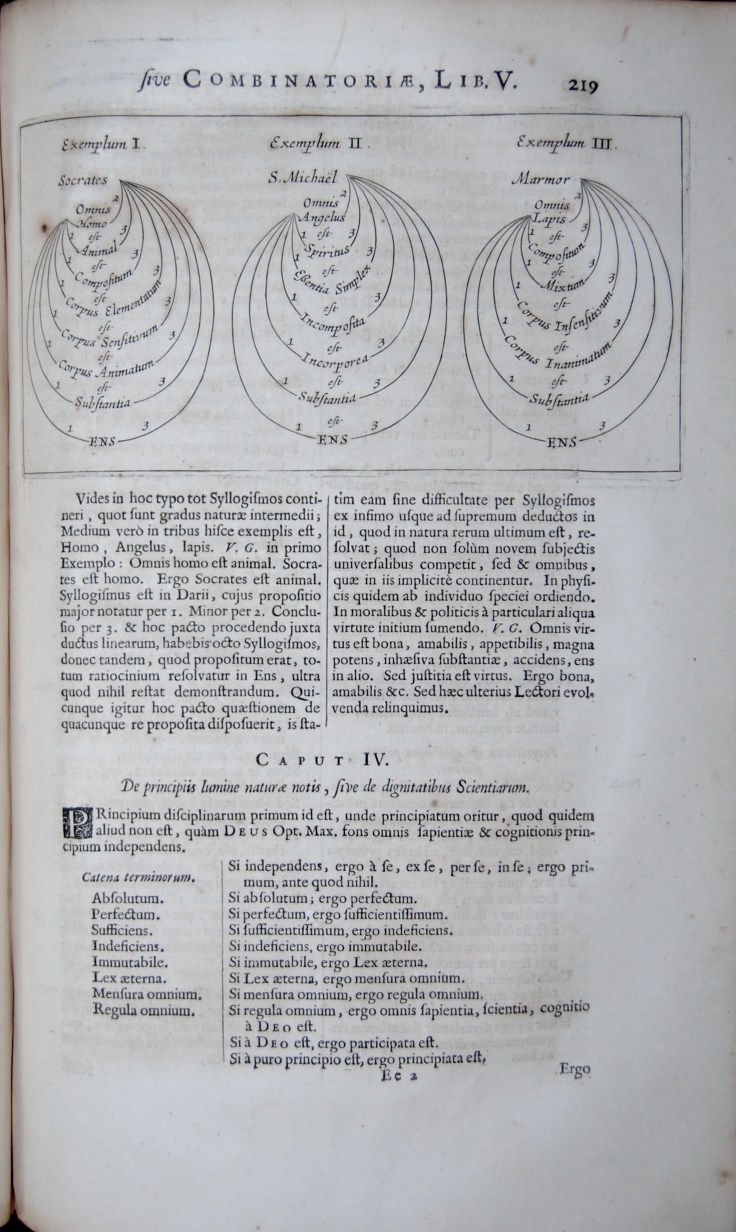 ſive COMBINATORIÆ, LIB. V. 219
Exemplum I.
Socrates
2
Omnis
Homo
1 eſt 3
Animal
eſt
Compoſitum 3
eſt
Corpus Elementatum
1 eſt 3
Corpus Senſitivum
eſt 3
Corpus Animatum
1 eſt 3
Subſtantia
1 3
ENS
Exemplum II.
S. Michaël
2
Omnis
Angelus
1 eſt 3
Spiritus 3
1 eſt
Eſſentia Simplex
1 eſt 3
Incompoſita
1 eſt 3
Incorporea
1 eſt 3
Subſtantia
1 eſt 3
ENS
Exemplum III.
Marmor
2
Omnis
Lapis
1 eſt 3
Compoſitum
1 eſt 3
Mixtum
1 eſt 3
Corpus Inſenſitivum
1 eſt 3
Corpus Inanimatum
1 eſt 3
Subſtantia
1 eſt 3
ENS
Vides in hoc typo tot Syllogiſmos conti-
neri, quot ſunt gradus naturæ intermedii;
Medium verò in tribus hiſce exemplis eſt,
Homo, Angelus, lapis. V. G. in primo
Exemplo: Omnis homo eſt animal. Socra-
tes eſt homo. Ergo Socrates eſt animal.
Syllogiſmus eſt in Darii, cujus propoſitio
major notatur per 1. Minor per 2. Concluſ-
ſio per 3. & hoc pacto procedendo juxta
ductus linearum, habebis octo Syllogiſmos,
donec tandem, quod propoſitum erat, to-
tum ratiocinium reſolvatur in Ens, ultra
quod nihil reſtat demonſtrandum. Qui-
cunque igitur hoc pacto quæſtionem de
quacunque re propoſita diſpoſuerit, is ſta-
tim eam ſine difficultate per Syllogiſmos
ex infimo uſque ad ſupremum deductos in
id, quod in natura rerum ultimum eſt, re-
ſolvat; quod non ſolùm novem ſubjectis
univerſalibus competit, ſed & omnibus,
quæ in iis implicitè continentur. In phyſi-
cis quidem ab individuo ſpeciei ordiendo.
In moralibus & politicis à particulari aliqua
virtute initium ſumendo. V. G. Omnis vir-
tus eſt bona, amabilis, appetibilis, magna
potens, inhæſiva ſubſtantiæ, accidens, ens
in alio. Sed juſtitia eſt virtus. Ergo bona,
amabilis &c. Sed hæc ulterius Lectori evol-
venda relinquimus.
CAPUT IV.
De principiis lumine naturæ notis, ſive de dignitatibus Scientiarum.
PRincipium diſciplinarum primum id eſt, unde principiatum oritur, quod quidem
aliud non eſt, quàm DEUS Opt. Max. fons omnis ſapientiæ & cognitionis prin-
cipium independens.
Catena terminorum.
Abſolutum.
Perfectum.
Sufficiens.
Indeficiens.
Immutabile.
Lex æterna.
Menſura omnium.
Regula omnium.
Si independens, ergo à ſe, ex ſe, per ſe, in ſe; ergo pri-
mum, ante quod nihil.
Si abſolutum; ergo perfectum.
Si perfectum, ergo ſufficientiſſimum.
Si ſufficientiſſimum, ergo indeficiens.
Si indeficiens, ergo immutabile.
Si immutabile, ergo Lex æterna.
Si Lex æterna, ergo menſura omnium.
Si menſura omnium, ergo regula omnium.
Si regula omnium, ergo omnis ſapientia, ſcientia, cognitio
à DEO eſt.
Si à DEO eſt, ergo participata eſt.
Si à puro principio eſt, ergo principiata eſt,
Ee 2 Ergo